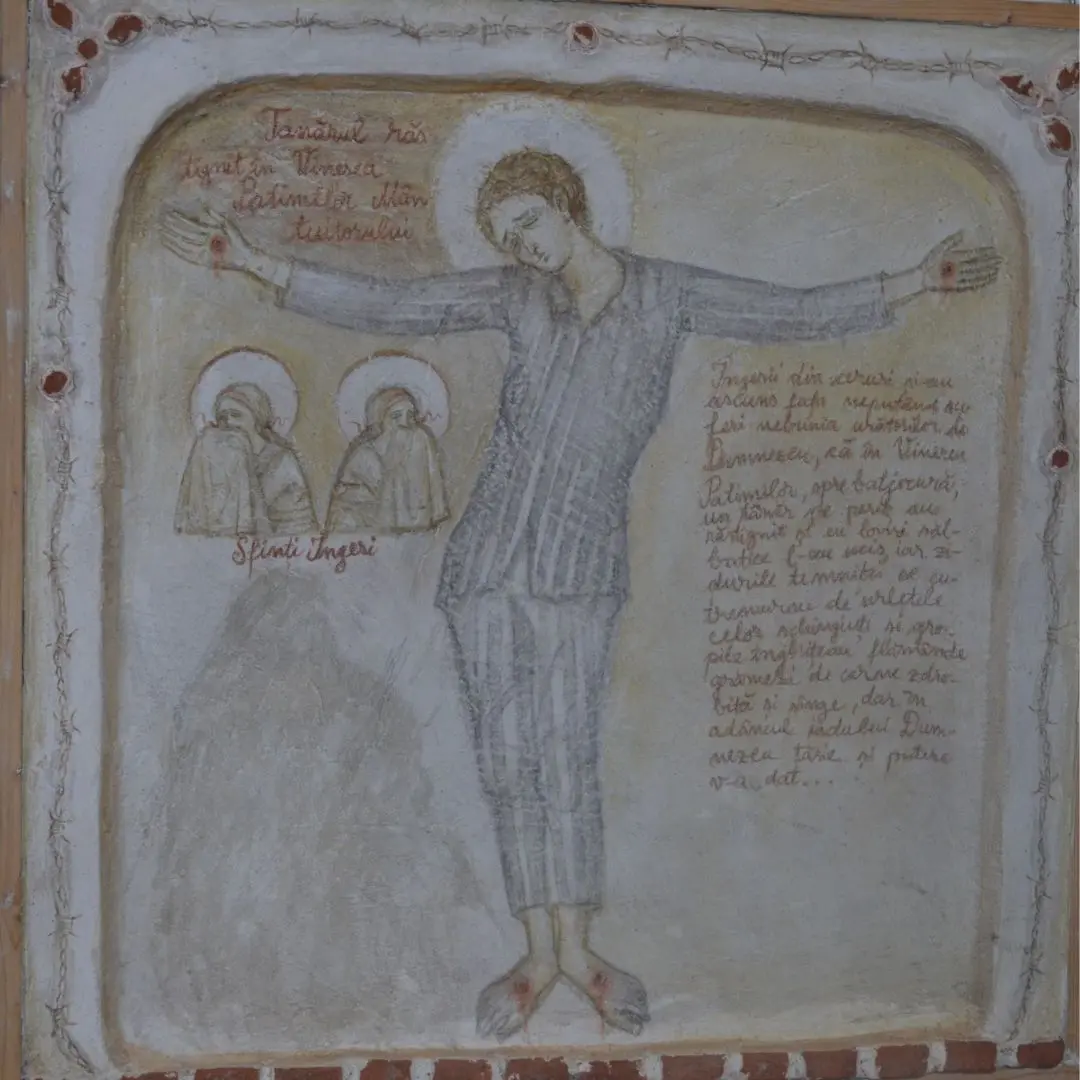 Tanărul răs
tignit în Vinerea
Patimilor Mân
tuitorului
Sfinți Îngeri
Îngerii din ceruri și-au
ascuns fața neputând su-
feri nebunia urâtorilor de
Dumnezeu, că în Vinerea
Patimilor, spre batjocură,
un tânăr pe perete au
răstignit și cu loviri săl-
batice l-au ucis iar zi-
durile temniței se cu-
tremurau de urletele
celor schingiuți și gro-
pile înghițeau flămânde
grămezi de carne zdro-
bită și sânge, dar în
adâncul iadului Dum-
nezeu tărie și putere
v-a dat...